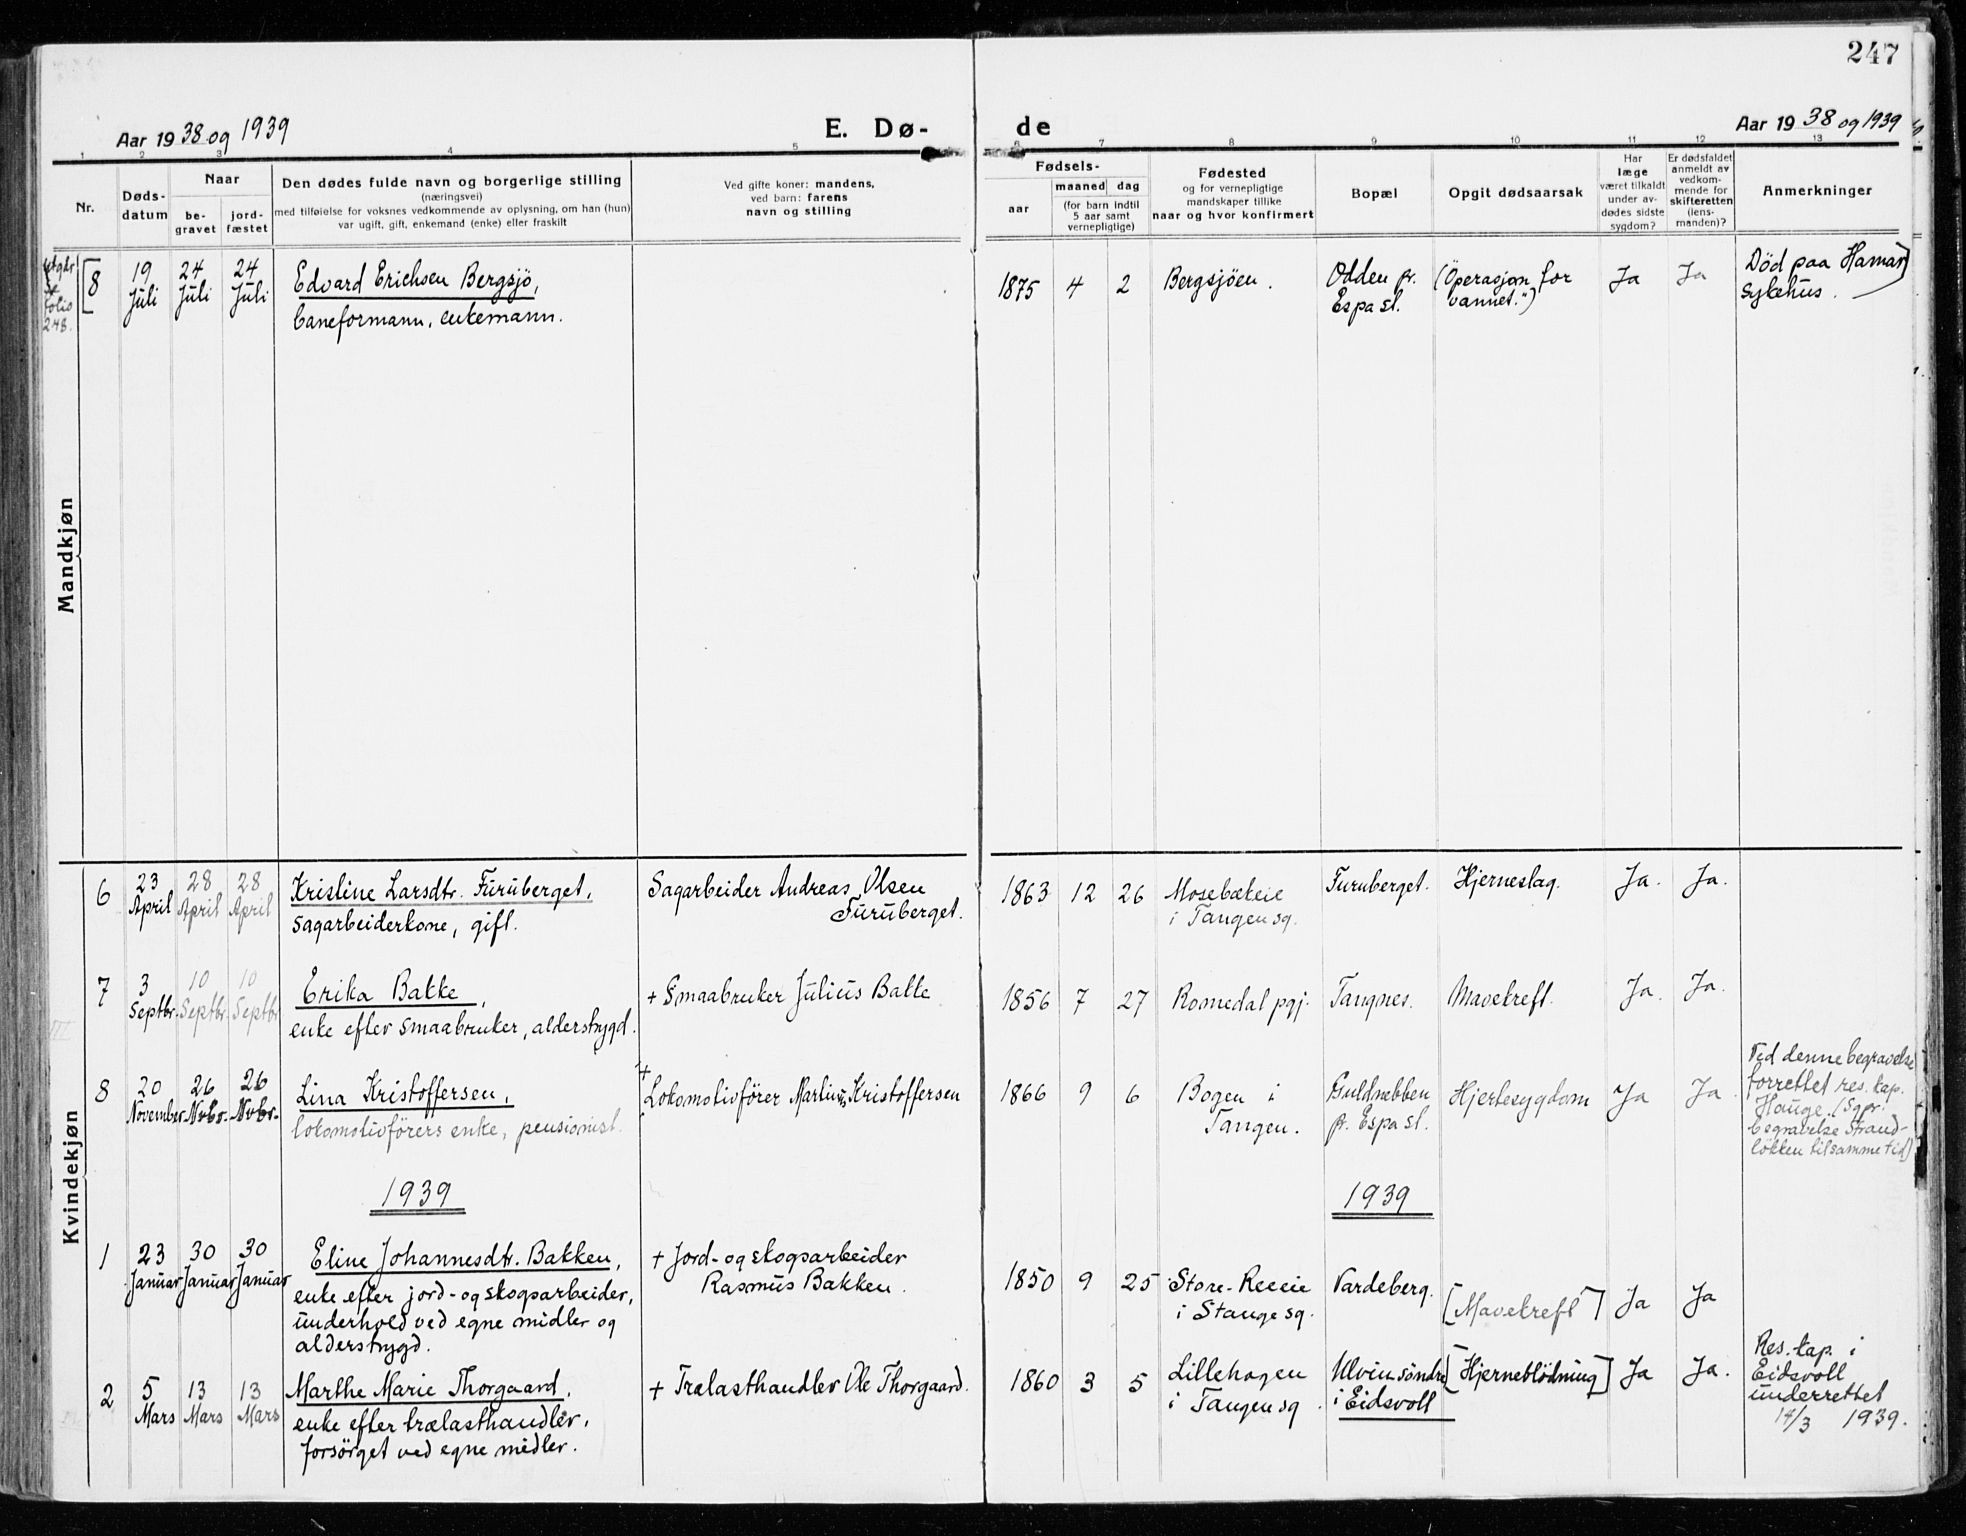 247
Aar 1938 og 1939
E. Dø-
de
Aar 1938 og 1939
1 2 3 4 5 6 7 8 9 10 11 12 13
Nr.
Døds-
datum
Naar
be-
gravet
jord-
fæstet
Den dødes fulde navn og borgerlige stilling
(næringsvei)
med tilføielse for voksnes vedkommende av oplysning, om han (hun)
var ugift, gift, enkemand (enke) eller fraskilt
Ved gifte koner: mandens,
ved barn: farens
navn og stilling
Fødsels-
aar
maaned
dag
(for barn indtil
5 aar samt
vernepligtige)
Fødested
og for vernepligtige
mandskaper tillike
naar og hvor konfirmert
Bopæl
Opgit dødsaarsak
Har
læge
været tilkaldt
under av-
dødes sidste
sygdom?
Er dødsfaldet
anmeldt av
vedkom-
mende for
skifteretten
(lens-
manden)?
Anmerkninger
Mandkjøn
folio
248.
8
19
Juli
24
Juli
24
Juli
Edvard Erichsen Bergsjö,
baneformann, enkemann.
1875 4 2
Bergsjöen.
Odden pr.
Espa st.
(Operasjon for
vannet.")
Ja
Ja
Död paa Hamar
Sykehus.
Kvindekjøn
6
23
April
28
April
28
April
Kristine Larsdtr. Furuberget,
sagarbeiderkone, gift.
Sagarbeider Andreas Olsen
Furuberget.
1863 12 26
Mosebækeie
i Tangen sg.
Furuberget.
Hjerneslag.
Ja.
Ja.
7
3
Septbr.
10
Septbr.
10
Septbr
Erika Bakke,
enke efter smaabruker, alderstrygd.
+ Smaabruker Julius Bakke
1856 7 27
Romedal pgj.
Tangnes.
Mavekreft.
Ja.
Ja.
8
20
November
26
Nvbr.
26
Nvbr.
Lina Kristoffersen,
lokomotivförers enke, pensionist.
+
Lokomotivförer Martinius Kristoffersen
1866 9 6
Bogen i
Tangen.
Guldnebben
pr. Espa st.
Hjertesygdom
Ja
Ja.
Ved denne begravelse
forrettet res. kap.
Hauge. (Sgpr:
begravelse Strand-
lökken tilsamme tid)
1939
1939
1
23
Januar
30
Januar
30
Januar
Eline Johannesdtr. Bakken,
enke efter jord- og skogsarbeider,
underhold ved egne midler og
alderstrygd.
+ Jord- og skogsarbeider
Rasmus Bakken.
1850 9 25
Store-Reeeie
i Stange sg.
Vardeberg.
[Mavekreft]
Ja
Ja
2
5
Mars
13
Mars
13
Mars
Marthe Marie Thorgaard,
enke efter trælasthandler,
forsörget ved egne midler.
+ Trælasthandler Ole Thorgaard.
1860 3 5
Lillehagen
i Tangen sg.
Ulvin söndre
i Eidsvoll
[Hjerneblödning]
Ja
Ja.
Res. kap. i
Eidsvoll
underrettet
14/3 1939.